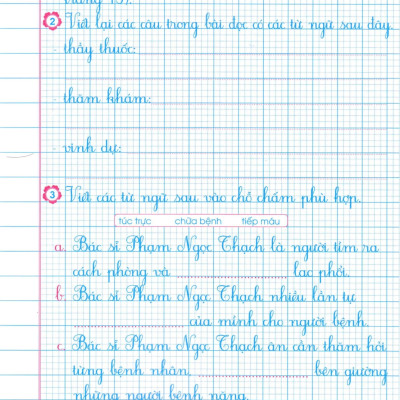 2 Viết lại các câu trong bài đọc có các từ ngữ sau đây.
- thầy thuốc:
- thăm khám:
- vinh dự:
3 Viết các từ ngữ sau vào chỗ chấm phù hợp.
túc trực chữa bệnh tiếp máu
a. Bác sĩ Phạm Ngọc Thạch là người tìm ra
cách phòng và .......................... lao phổi.
b. Bác sĩ Phạm Ngọc Thạch nhiều lần tự
.......................... của mình cho người bệnh.
c. Bác sĩ Phạm Ngọc Thạch ân cần thăm hỏi
từng bệnh nhân, .......................... bên giường
những người bệnh nặng.